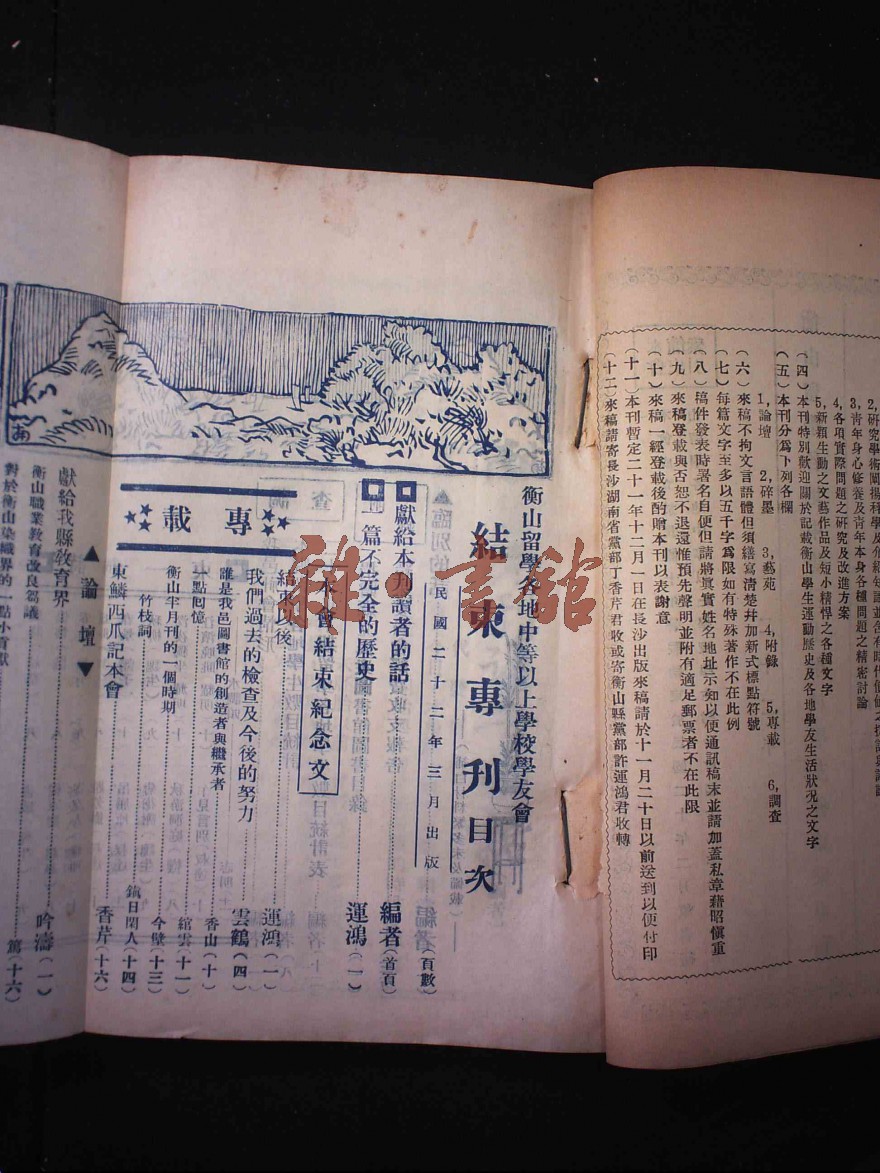 3，青年身心修養及青年本身各種問題之精密討論
4，各項實際問題之研究及改進方案
5，新穎生動之文藝作品及短小精悍之各種文字
（四）本刊特別歡迎關於記載衡山學生運動歷史及各地學友生活狀況之文字
（五）本刊分爲下列各欄
1，論壇 2，碎墨 3，藝苑 4，附錄 5，專載 6，調查
（六）來稿不拘文言語體但須繕寫清楚幷加新式標點符號
（七）每篇文字至多以五千字爲限如有特殊著作不在此例
（八）稿件發表時署名自便但請將眞實姓名地址示知以便通訊稿末並請加蓋私章藉昭愼重
（九）來稿登載與否恕不退還惟預先聲明並附有適足郵票者不在此限
（十）來稿一經登載後酌贈本刊以表謝意
（十一）本刊暫定二十一年十二月一日在長沙出版來稿請於十一月二十日以前送到以便付印
（十二）來稿請寄長沙湖南省黨部丁香芹君收或寄衡山縣黨部許運鴻君收轉
衡山留學各地中等以上學校學友會
結束專刊目次
民國二十二年三月出版
（頁數）
獻給本刊讀者的話 編者（首頁）
一篇不完全的歷史 運鴻（一）
本會結束紀念文
專載
結束以後 運鴻（一）
我們過去的檢查及今後的努力 雲鶴（四）
誰是我邑圖書館的創造者與繼承者 香山（十）
一點囘憶 綰雲（十一）
衡山半月刊的一個時期 今壁（十三）
竹枝詞 鎮日閑人（十四）
東鱗西爪記本會 香芹（十六）
▲論壇▼
獻給我縣敎育界 吟濤（一）
衡山職業敎育改良芻議
對於衡山染織界的一點小貢獻 篤（十六）
雜·書館